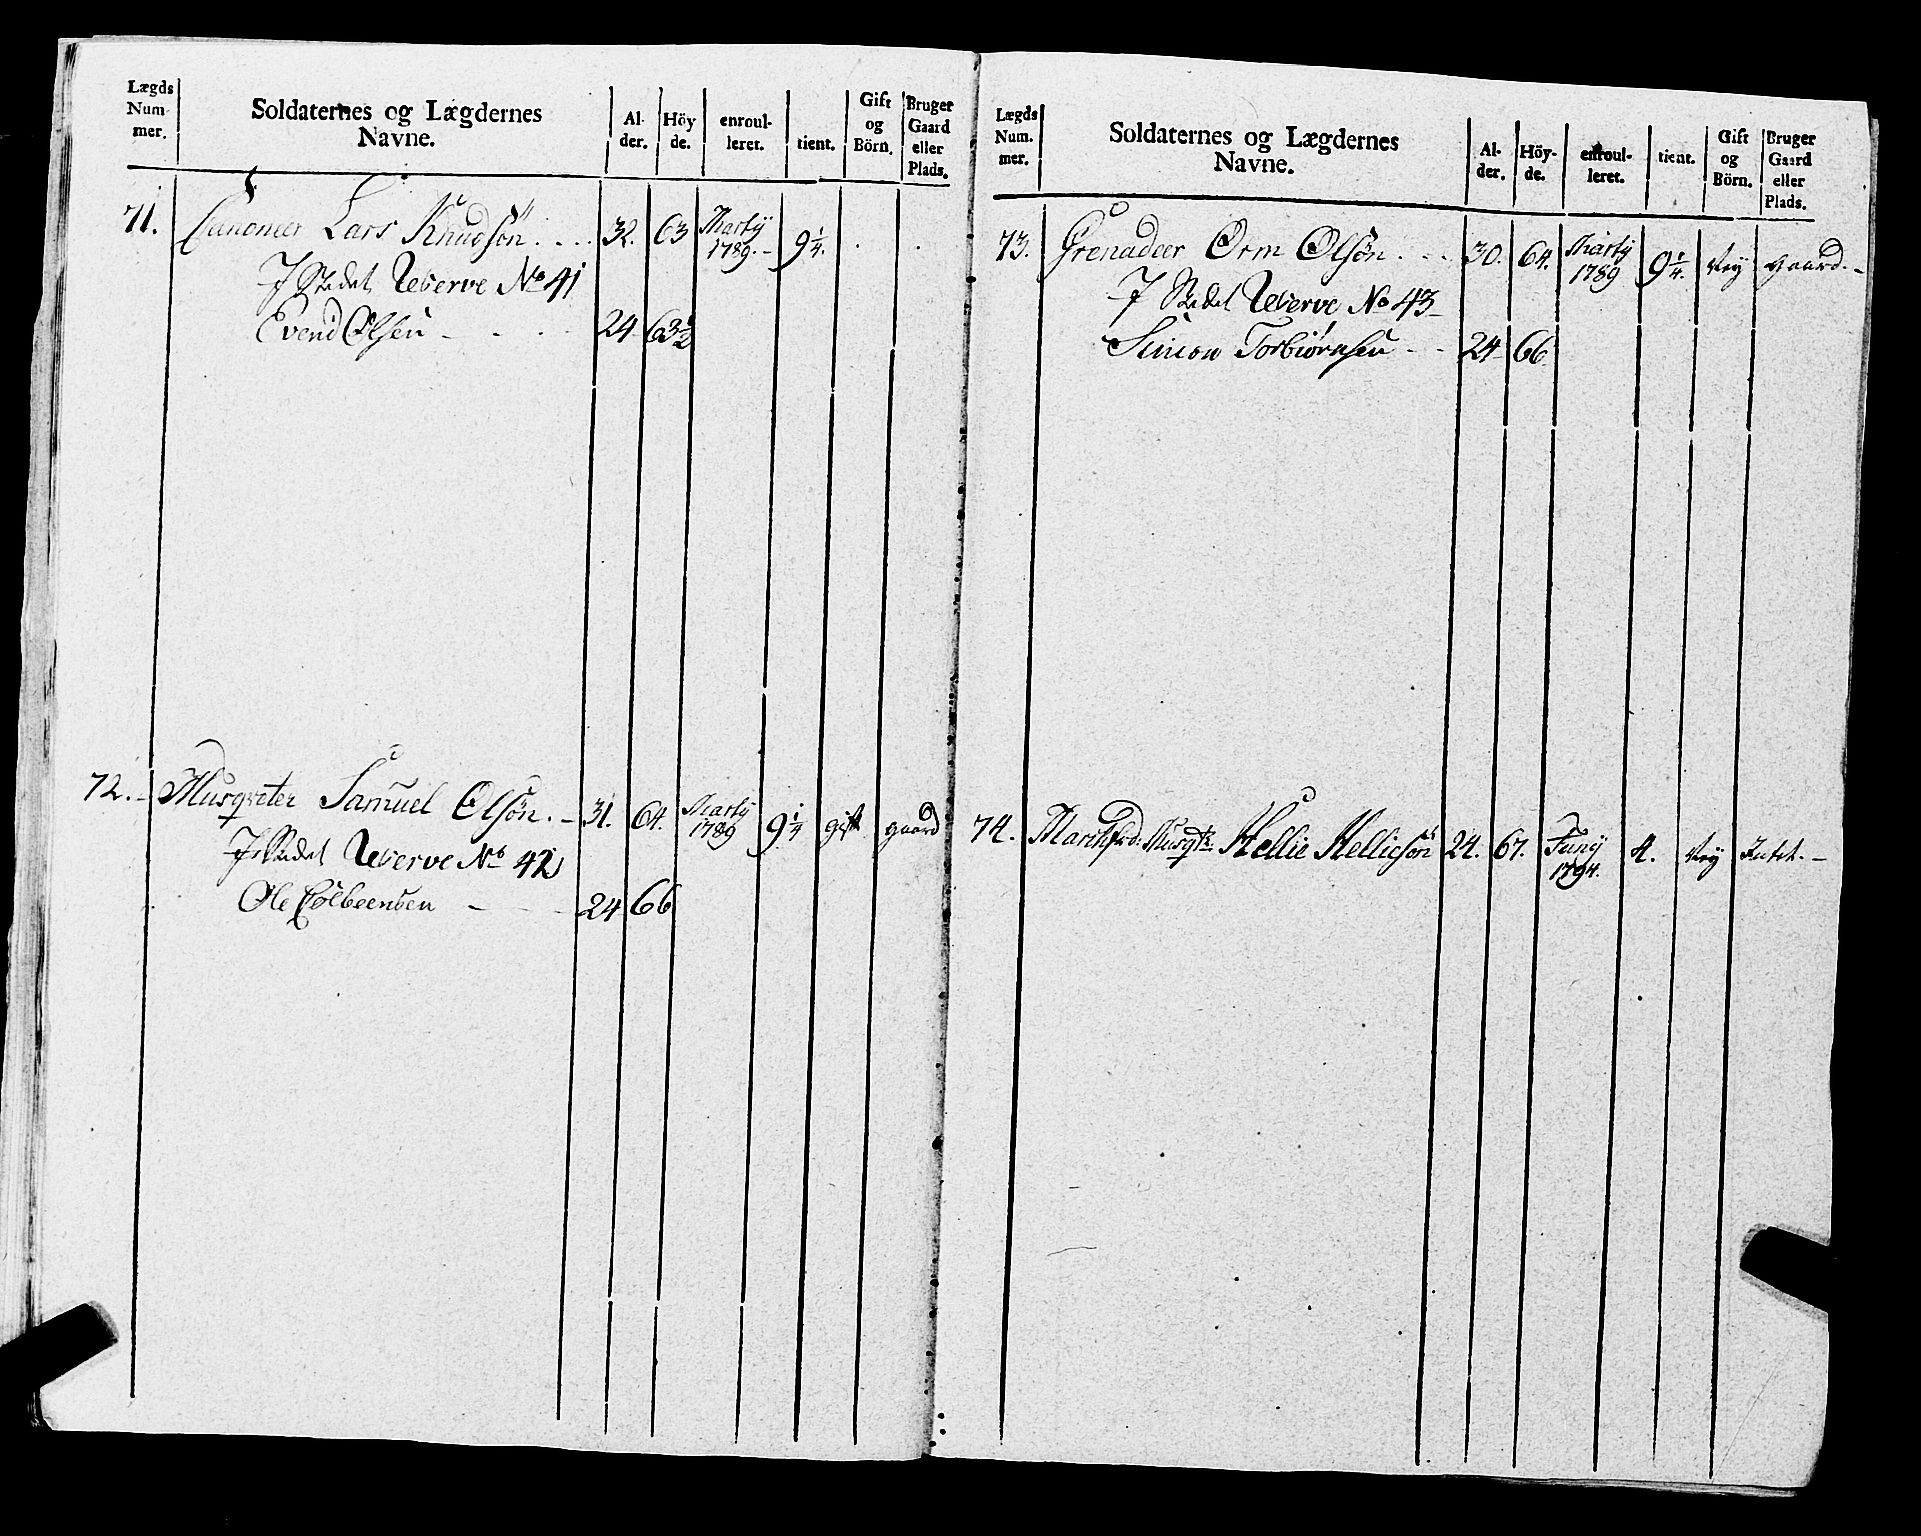 Lægds Num- mer. Soldaternes og Lægdernes Navne. Al- der. Höy de. enroul- leret. tient. Gift og Börn. Bruger Gaard eller Plads.
71. Canoneer Lars Knudsön. 32. 63 Marty 1789. 9 1/4.
I Stedet Werve No 41
Evend Olsen - 24 63 1/2
72. Musqveter Samuel Olsön. 31. 64. Marty 1789 9 1/4 gift gaard
I Stedet Werve No 42
Ole - 24 66
Lægds Num. mer. Soldaternes og Lægdernes Navne. Al- der. Höy- de. enroul- leret. tient. Gift og Börn. Bruger Gaard eller Plads.
73. Grenadeer Orm Olsön. 30. 64. Marty 1789 9 1/4. gaard.
I Stedet Werve No 43
Simon Torbiørnsen - 24 66
74. Hellie Helliesön 24. 67. Juny 1794. 4.